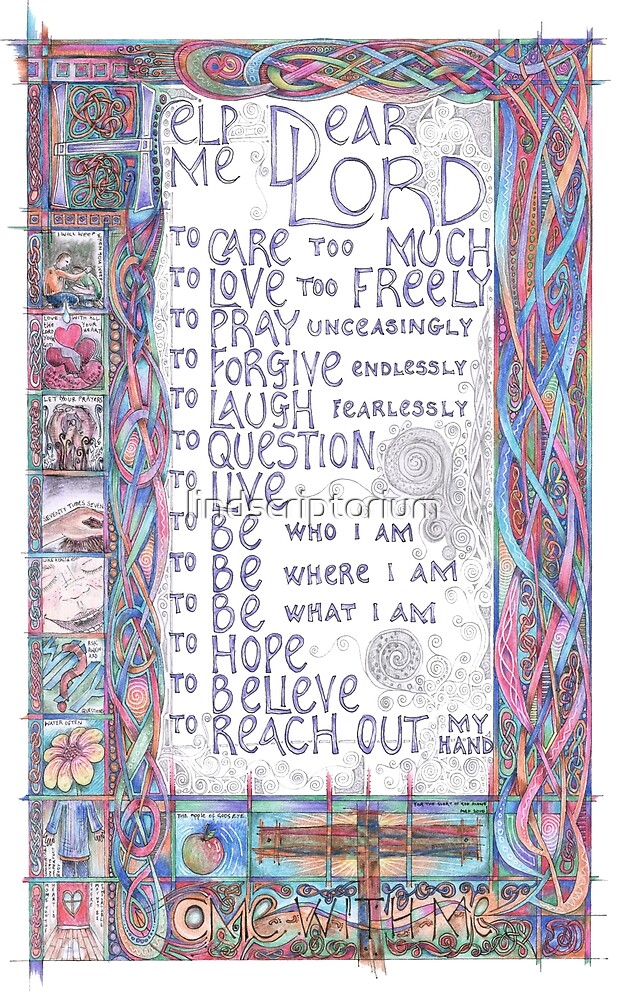 HELP DEAR
ME LORD
TO CARE TOO MUCH
TO LOVE TOO FREELY
TO PRAY UNCEASINGLY
TO FORGIVE ENDLESSLY
TO LAUGH FEARLESSLY
TO QUESTION
TO LIVE
lindscriptorium
TO BE WHO I AM
TO BE WHERE I AM
TO BE WHAT I AM
TO HOPE
TO BELIEVE
TO REACH OUT MY
HAND
I WILL WEEP
WHEN YOU WEEP
LOVE WITH ALL
the YOUR
LORD HEART
YOUR
GOD
LET YOUR PRAYERS
SEVENTY TIMES SEVEN
ASK
AWKWARD
QUESTIONS
WATER OFTEN
THE APPLE OF GODS EYE
FOR THE GLORY OF GOD ALONE
COME WITH ME